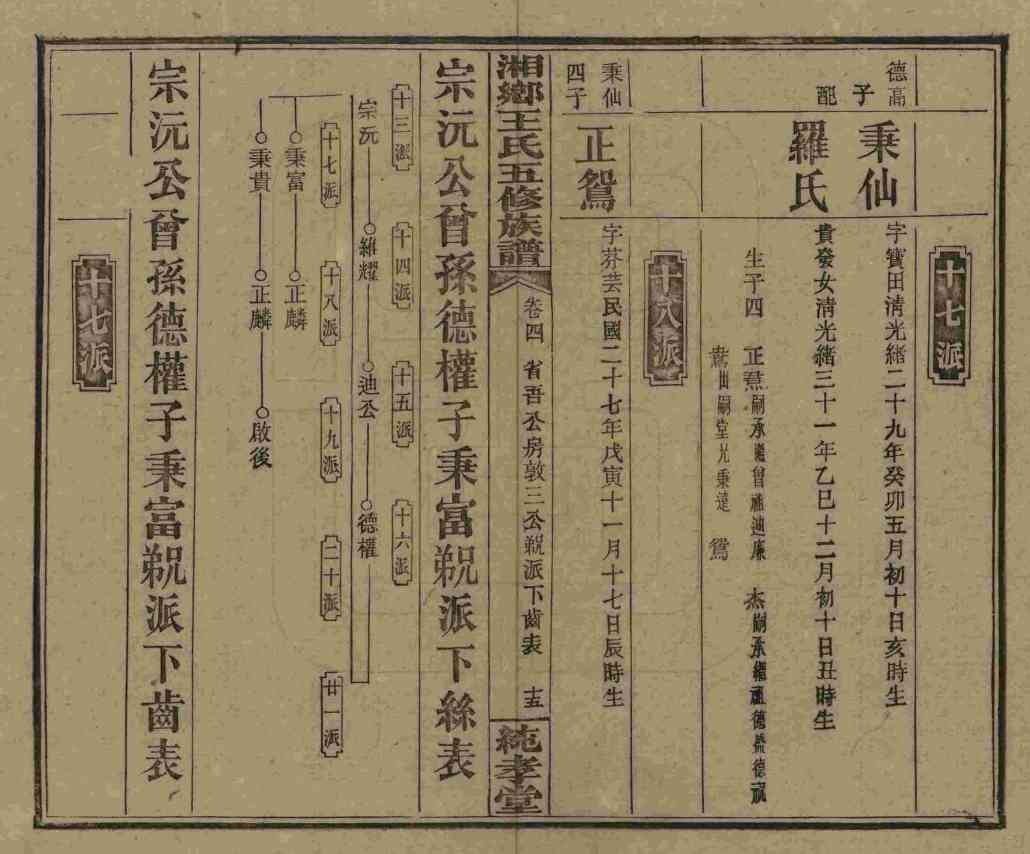 十七派
德高子
秉仙
字寶田清光緒二十九年癸卯五月初十日亥時生
配
羅氏
貴發女清光緒三十一年乙巳十二月初十日丑時生
生子四 正 嗣承繼曾祖迪廉 杰嗣承繼祖德 德
出嗣堂兄秉達 鴛
十八派
秉仙四子
正鴛
字芬芸民國二十七年戊寅十一月十七日辰時生
湘鄉王氏五修族譜 卷四 省吾公房敦三公派下齒表 十五 純孝堂
宗沅公曾孫德權子秉富派下絲表
十三派 十四派 十五派 十六派
宗沅 維耀 迪公 德權
十七派 十八派 十九派 二十派 廿一派
秉富 正麟
秉貴 正麟 啟後
宗沅公曾孫德權子秉富派下齒表
十七派